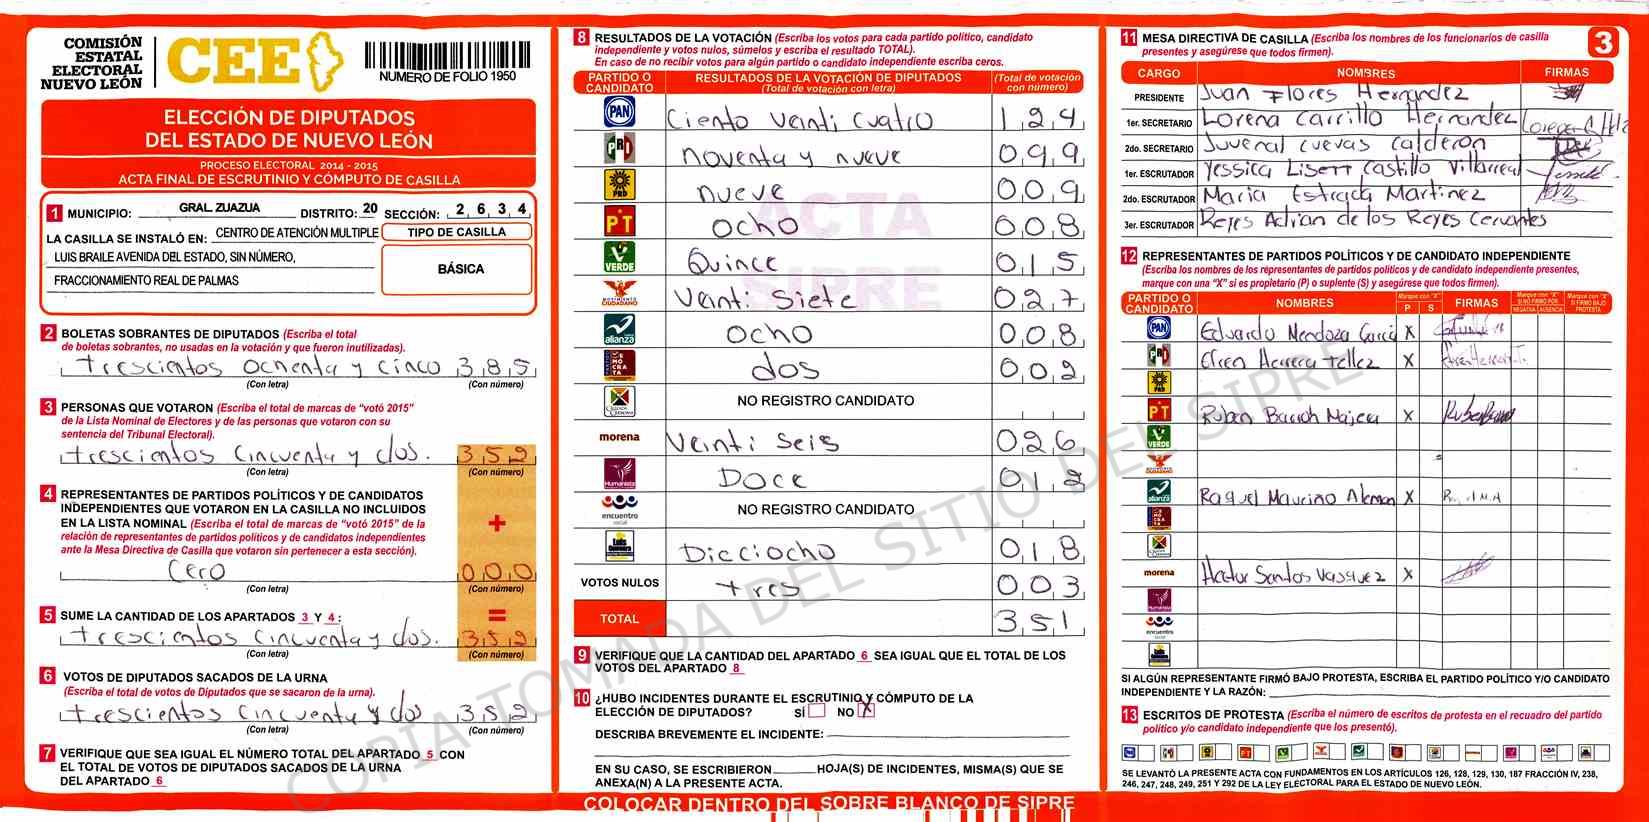 COMISIÓN
ESTATAL
ELECTORAL
NUEVO LEÓN
CEE
NUMERO DE FOLIO 1950
ELECCIÓN DE DIPUTADOS
DEL ESTADO DE NUEVO LEÓN
PROCESO ELECTORAL 2014 - 2015
ACTA FINAL DE ESCRUTINIO Y CÓMPUTO DE CASILLA
1 MUNICIPIO: GRAL ZUAZUA DISTRITO: 20 SECCIÓN: 2 6 3 4
LA CASILLA SE INSTALÓ EN: CENTRO DE ATENCIÓN MULTIPLE
LUIS BRAILE AVENIDA DEL ESTADO, SIN NÚMERO,
FRACCIONAMIENTO REAL DE PALMAS
TIPO DE CASILLA
BÁSICA
2 BOLETAS SOBRANTES DE DIPUTADOS (Escriba el total
de boletas sobrantes, no usadas en la votación y que fueron inutilizadas).
trescientos ochenta y cinco 3 8 5
(Con letra) (Con número)
3 PERSONAS QUE VOTARON (Escriba el total de marcas de “votó 2015”
de la Lista Nominal de Electores y de las personas que votaron con su
sentencia del Tribunal Electoral).
trescientos cincuenta y dos. 3 5 2
(Con letra) (Con número)
4 REPRESENTANTES DE PARTIDOS POLÍTICOS Y DE CANDIDATOS
INDEPENDIENTES QUE VOTARON EN LA CASILLA NO INCLUIDOS
EN LA LISTA NOMINAL (Escriba el total de marcas de “votó 2015” de la
relación de representantes de partidos políticos y de candidatos independientes
ante la Mesa Directiva de Casilla que votaron sin pertenecer a esta sección).
+
Cero 0 0 0
(Con letra) (Con número)
5 SUME LA CANTIDAD DE LOS APARTADOS 3 Y 4 : =
trescientos cincuenta y dos. 3 5 2
(Con letra) (Con número)
6 VOTOS DE DIPUTADOS SACADOS DE LA URNA
(Escriba el total de votos de Diputados que se sacaron de la urna).
trescientos cincuenta y dos 3 5 2
(Con letra) (Con número)
7 VERIFIQUE QUE SEA IGUAL EL NÚMERO TOTAL DEL APARTADO 5 CON
EL TOTAL DE VOTOS DE DIPUTADOS SACADOS DE LA URNA
DEL APARTADO 6
8 RESULTADOS DE LA VOTACIÓN (Escriba los votos para cada partido político, candidato
independiente y votos nulos, súmelos y escriba el resultado TOTAL).
En caso de no recibir votos para algún partido o candidato independiente escriba ceros.
PARTIDO O CANDIDATO RESULTADOS DE LA VOTACIÓN DE DIPUTADOS (Total de votación con letra) (Total de votación con número)
PAN Ciento veinti cuatro 1 2 4
PRI noventa y nueve 0 9 9
PRD nueve 0 0 9
PT ocho 0 0 8
VERDE Quince 0 1 5
MOVIMIENTO CIUDADANO Veinti siete 0 2 7
alianza ocho 0 0 8
DEMOCRATA dos 0 0 2
NO REGISTRO CANDIDATO
morena Veinti seis 0 2 6
Humanista Doce 0 1 2
encuentro social NO REGISTRO CANDIDATO
Dicciocho 0 1 8
VOTOS NULOS tres 0 0 3
TOTAL 3 5 1
ACTA
SIPRE
9 VERIFIQUE QUE LA CANTIDAD DEL APARTADO 6 SEA IGUAL QUE EL TOTAL DE LOS
VOTOS DEL APARTADO 8
10 ¿HUBO INCIDENTES DURANTE EL ESCRUTINIO Y CÓMPUTO DE LA
ELECCIÓN DE DIPUTADOS? SÍ NO X
DESCRIBA BREVEMENTE EL INCIDENTE:
EN SU CASO, SE ESCRIBIERON HOJA(S) DE INCIDENTES, MISMA(S) QUE SE
ANEXA(N) A LA PRESENTE ACTA.
COLOCAR DENTRO DEL SOBRE BLANCO DE SIPRE
11 MESA DIRECTIVA DE CASILLA (Escriba los nombres de los funcionarios de casilla
presentes y asegúrese que todos firmen).
3
CARGO NOMBRES FIRMAS
PRESIDENTE Juan Flores Hernandez
1er. SECRETARIO Lorena Carrillo Hernandez
2do. SECRETARIO Juvenal cuevas calderon
1er. ESCRUTADOR Yessica Lisett Castillo Villarreal
2do. ESCRUTADOR Maria Estrada Martinez
3er. ESCRUTADOR Reyes Adrian de los Reyes Cervantes
12 REPRESENTANTES DE PARTIDOS POLÍTICOS Y DE CANDIDATO INDEPENDIENTE
(Escriba los nombres de los representantes de partidos políticos y de candidato independiente presentes,
marque con una “X” si es propietario (P) o suplente (S) y asegúrese que todos firmen).
PARTIDO O CANDIDATO NOMBRES Marque con "X" P S FIRMAS Marque con "X" SI NO FIRMÓ POR NEGATIVA AUSENCIA Marque con "X" SI FIRMÓ BAJO PROTESTA
PAN Eduardo Mendoza Garcia X
PRI Efren Herrera Tellez X
PRD
PT Ruben Barron Najera X
VERDE
alianza Raquel Mancino Aleman X
morena Hector Santos Vasquez X
Humanista
encuentro social
SI ALGÚN REPRESENTANTE FIRMÓ BAJO PROTESTA, ESCRIBA EL PARTIDO POLÍTICO Y/O CANDIDATO
INDEPENDIENTE Y LA RAZÓN:
13 ESCRITOS DE PROTESTA (Escriba el número de escritos de protesta en el recuadro del partido
político y/o candidato independiente que los presentó).
SE LEVANTÓ LA PRESENTE ACTA CON FUNDAMENTOS EN LOS ARTÍCULOS 126, 128, 129, 130, 187 FRACCIÓN IV, 238,
246, 247, 248, 249, 251 Y 292 DE LA LEY ELECTORAL PARA EL ESTADO DE NUEVO LEÓN.
COPIA TOMADA DEL SITIO DEL SIPRE